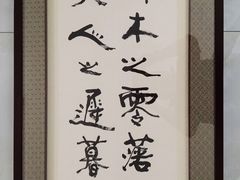 木之零落
人之遲暮